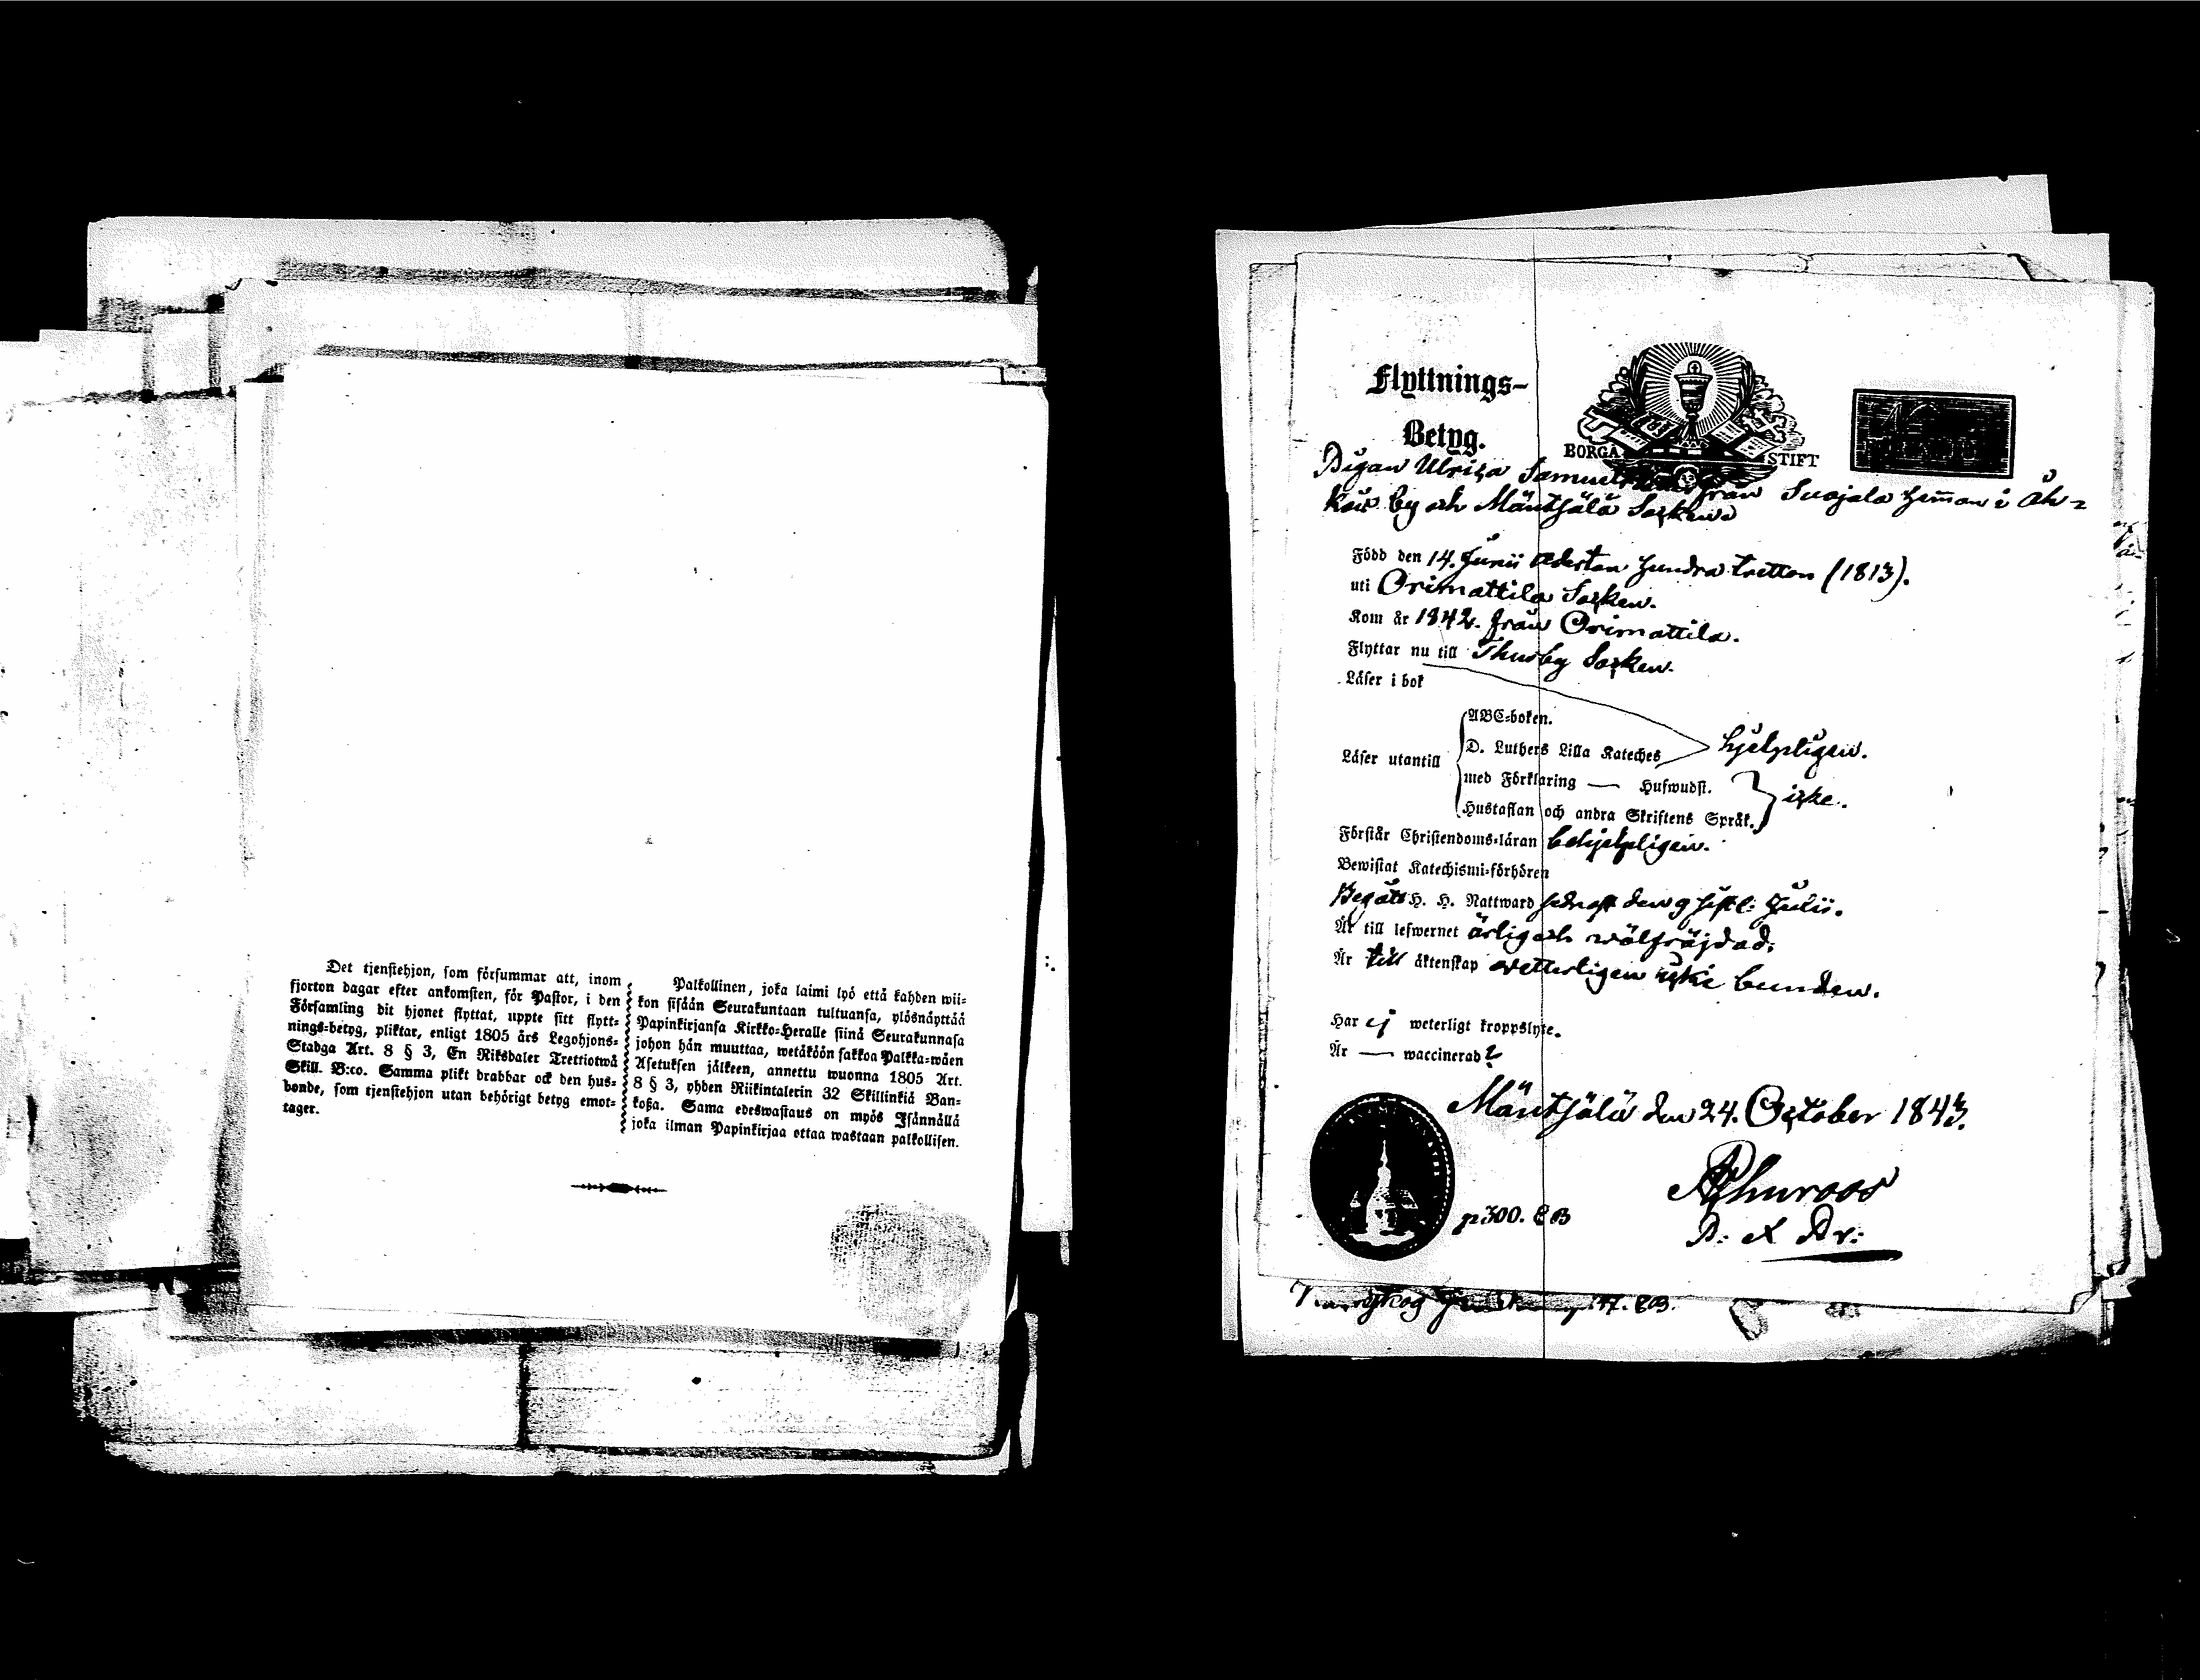 Det tjenstehjon, som försummar att, inom
fjorton dagar efter ankomsten, för Pastor, i den
Församling dit hjonet flyttat, uppte sitt flytt-
nings-betyg, pliktar, enligt 1805 års Legohjons-
Stadga Art. 8 § 3, En Riksdaler Trettiotwå
Skill. B:co. Samma plikt drabbar ock den hus-
bonde, som tjenstehjon utan behörigt betyg emot-
tager.
Palkollinen, joka laimi lyö että kahden wii-
kon sisään Seurakuntaan tultuansa, ylösnäyttää
Papinkirjansa Kirkko-Heralle siinä Seurakunnasa
johon hän muuttaa, wetäköön sakkoa Palkka-wäen
Asetuksen jälkeen, annettu wuonna 1805 Art.
8 § 3, yhden Riikintalerin 32 Skillinkiä Ban-
koßa. Sama edeswastaus on myös Isännällä
joka ilman Papinkirjaa ottaa wastaan palkollisen.
Flyttnings-
Betyg.
BORGÅ STIFT
Pigan Ulrica från Suojala heman i Åh-
by och Mäntsälä Socken
Född den 14. Junii aderton hundra tretton (1813).
uti Orimattila Socken.
Kom år 1842. från Orimattila.
Flyttar nu till Thusby Socken.
Läser i bok
ABC-boken.
Läser utantill D. Luthers Lilla Kateches hjelpligen.
med Förklaring — Hufwudst.
Hustaflan och andra Skriftens Språk. icke.
Förstår Christendoms-läran behjelpligen.
Bewistat Katechismi-förhören
Begått H. H. Nattward sednast den 9 sistl: Julii.
Är till lefwernet ärlig och wälfräjdad.
Är till äktenskap wetterligen icke bunden.
Har ej weterligt kroppslyte.
Är — waccinerad?
Mäntsälä den 24. October 1843.
p 300. CB
147. CB.